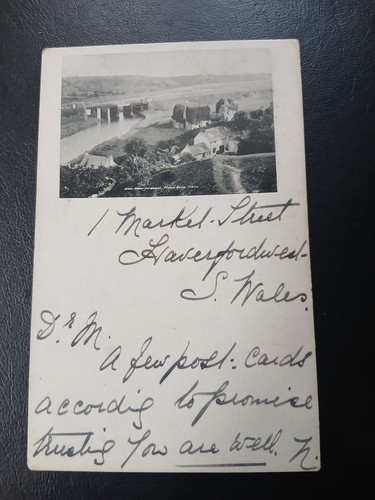 1 Market Street
Haverfordwest
S. Wales.
Dr M.
A few post-cards
according to promise
trusting you are well. N.